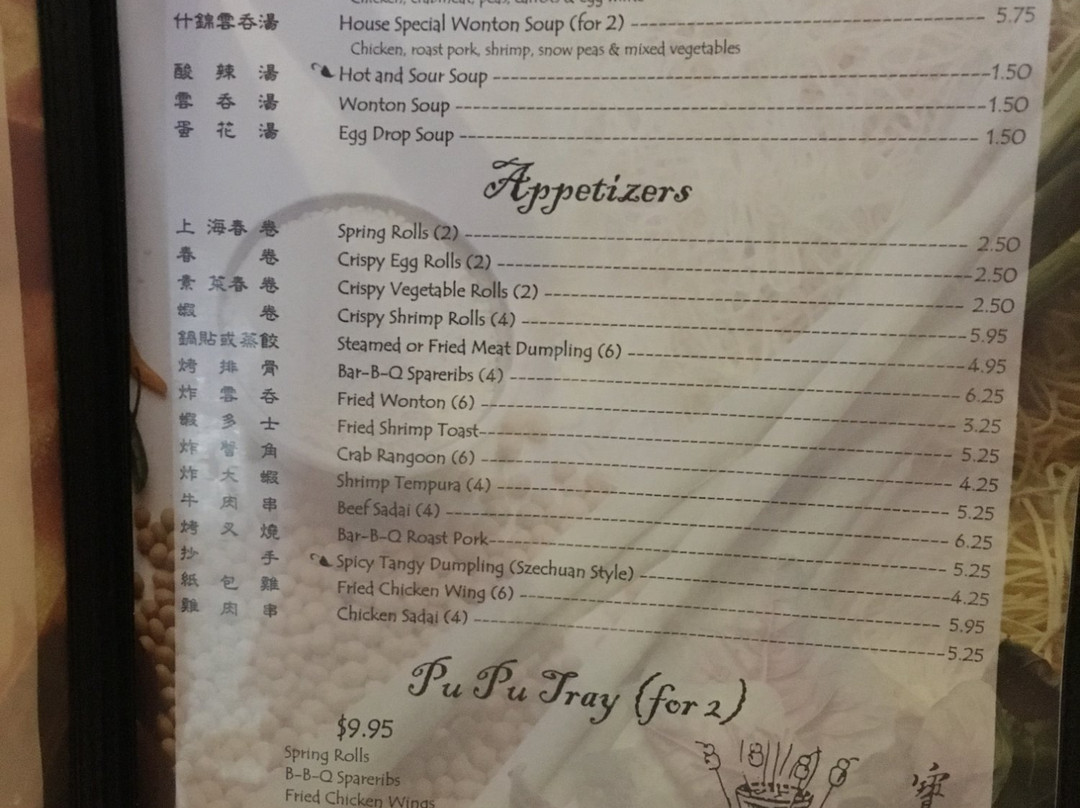 什錦雲吞湯 House Special Wonton Soup (for 2) 5.75
Chicken, roast pork, shrimp, snow peas & mixed vegetables
酸辣湯 Hot and Sour Soup 1.50
雲吞湯 Wonton Soup 1.50
蛋花湯 Egg Drop Soup 1.50
Appetizers
上海春卷 Spring Rolls (2) 2.50
春卷 Crispy Egg Rolls (2) 2.50
素菜春卷 Crispy Vegetable Rolls (2) 2.50
蝦卷 Crispy Shrimp Rolls (4) 5.95
鍋貼或蒸餃 Steamed or Fried Meat Dumpling (6) 4.95
烤排骨 Bar-B-Q Spareribs (4) 6.25
炸雲吞 Fried Wonton (6) 3.25
蝦多士 Fried Shrimp Toast 5.25
炸蟹角 Crab Rangoon (6) 4.25
炸大蝦 Shrimp Tempura (4) 5.25
牛肉串 Beef Sadai (4) 6.25
烤叉燒 Bar-B-Q Roast Pork 5.25
抄手 Spicy Tangy Dumpling (Szechuan Style) 4.25
紙包雞 Fried Chicken Wing (6) 5.95
雞肉串 Chicken Sadai (4) 5.25
Pu Pu Tray (for 2)
$9.95
Spring Rolls
B-B-Q Spareribs
Fried Chicken Wings